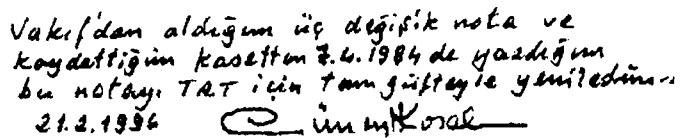 Vakıf'dan aldığım üç değişik nota ve
kaydettiğim kasetten 7.4.1984 de yazdığım
bu notayı TRT için tam güfteyle yeniledim..
21.2.1996